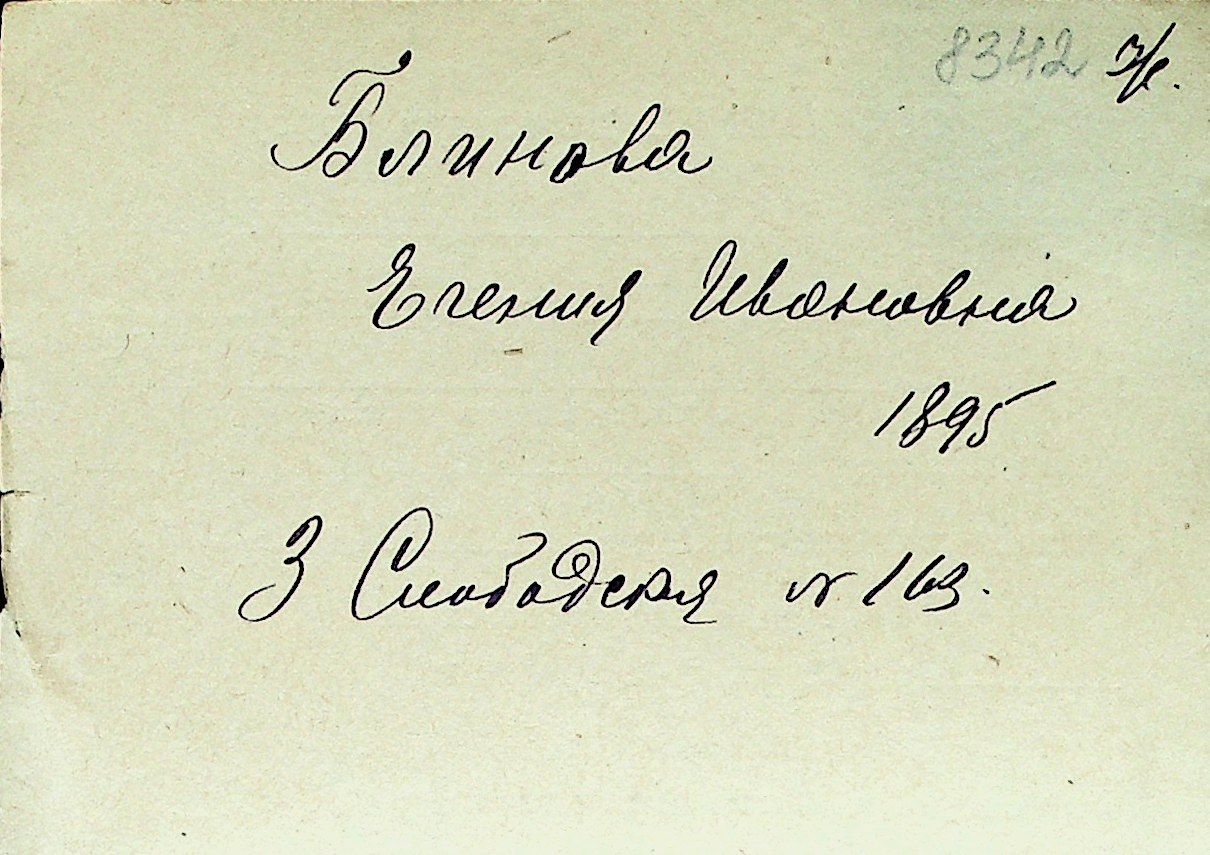 8342
Блинова
Егения Ивановна
1895
3 Слободская № 163.